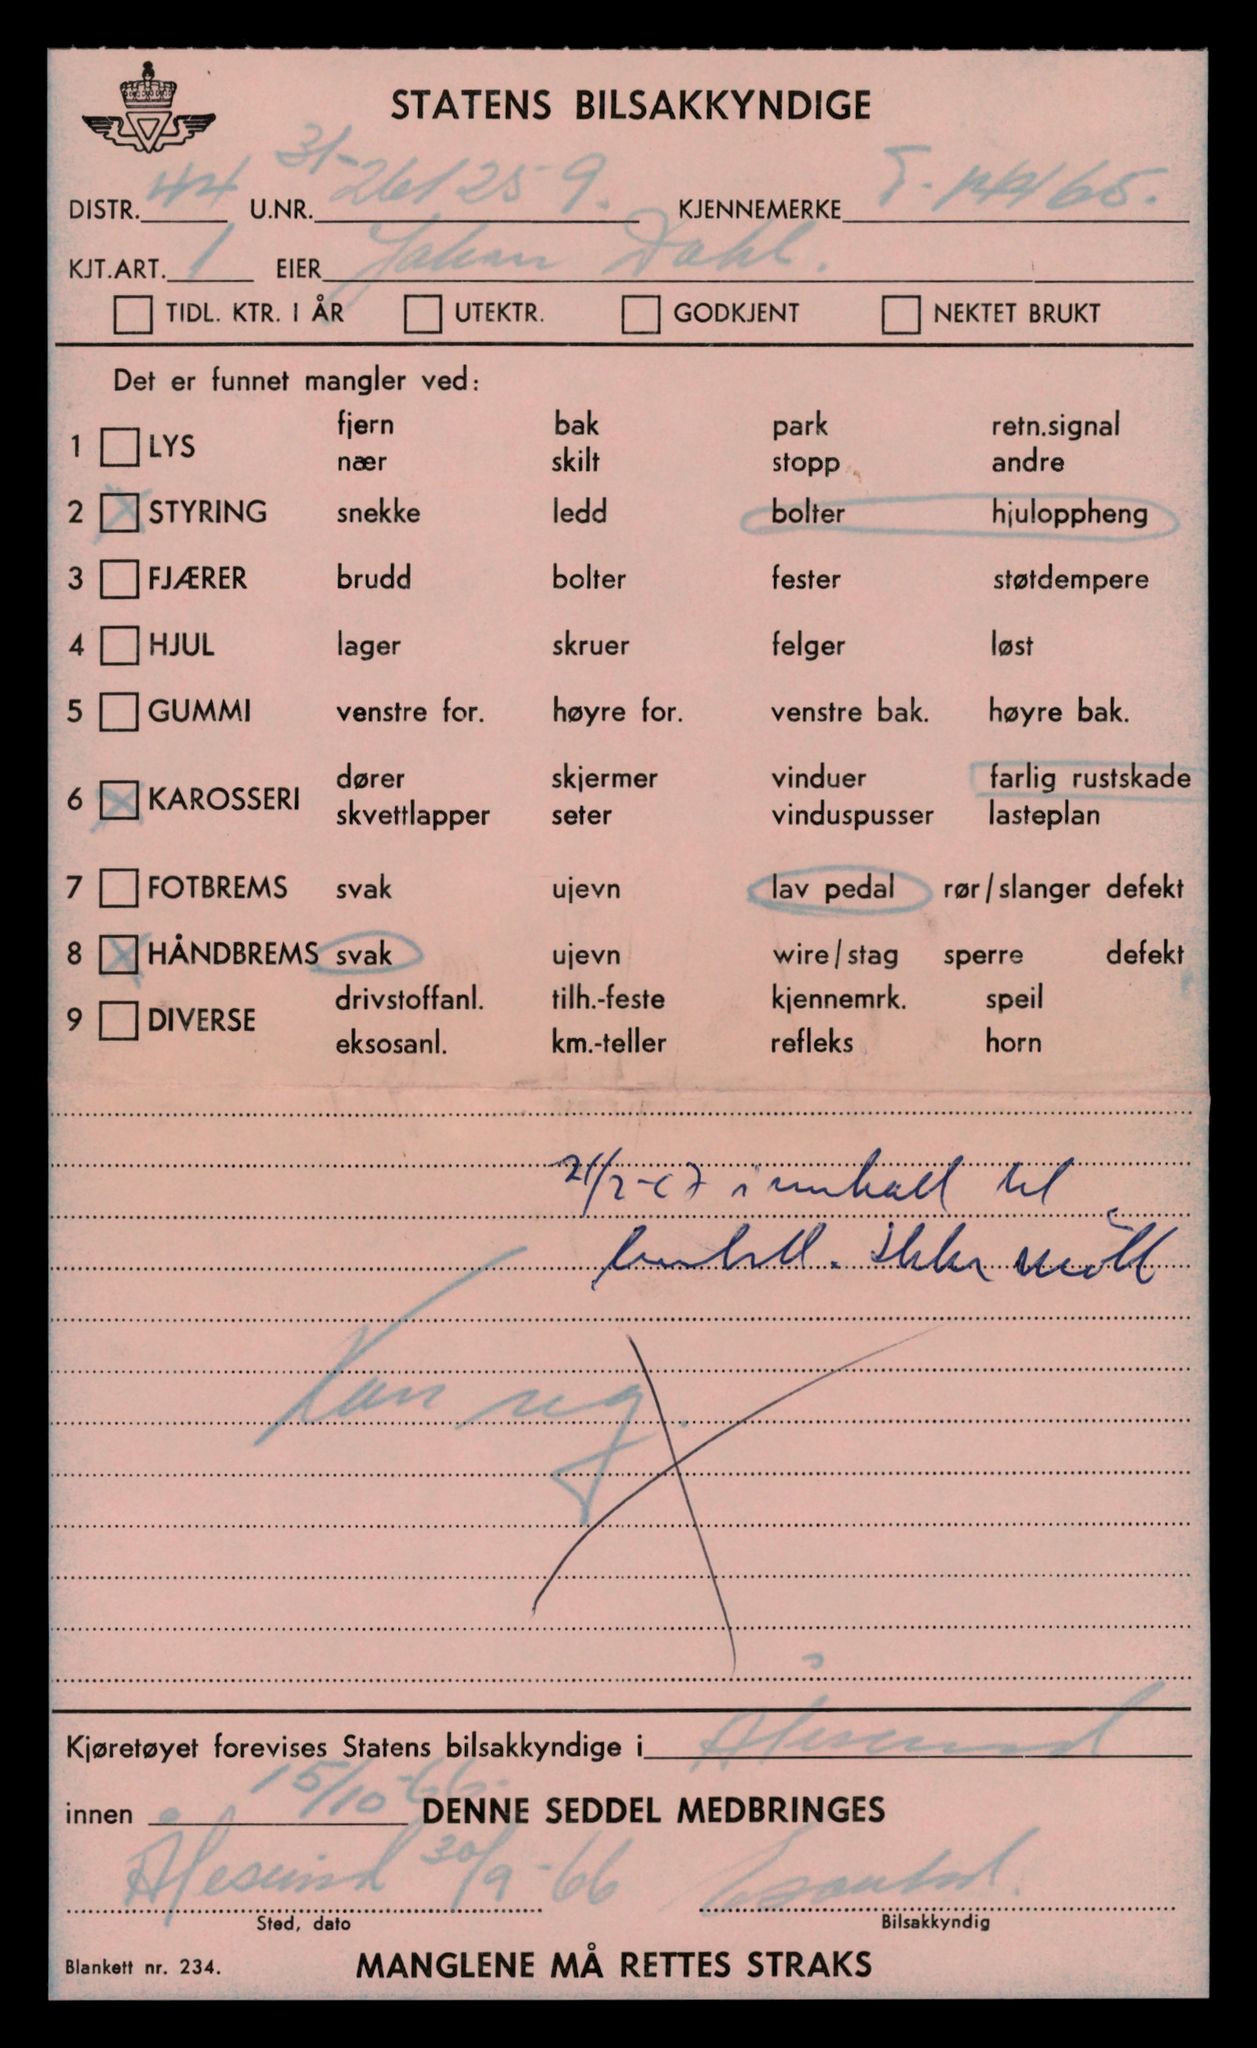 STATENS BILSAKKYNDIGE
31-
DISTR. 44 U.NR. 261259. KJENNEMERKE T-14465.
KJT.ART. 1 EIER Johan Dahl.
TIDL. KTR. I ÅR UTEKTR. GODKJENT NEKTET BRUKT
Det er funnet mangler ved:
fjern bak park retn.signal
1 LYS
nær skilt stopp andre
2 STYRING snekke ledd bolter hjuloppheng
3 FJÆRER brudd bolter fester støtdempere
4 HJUL lager skruer felger løst
5 GUMMI venstre for. høyre for. venstre bak. høyre bak.
dører skjermer vinduer farlig rustskade
6 KAROSSERI
skvettlapper seter vinduspusser lasteplan
7 FOTBREMS svak ujevn lav pedal rør/slanger defekt
8 HÅNDBREMS svak ujevn wire/stag sperre defekt
drivstoffanl. tilh.-feste kjennemrk. speil
9 DIVERSE
eksosanl. km.-teller refleks horn
21/2-67 innkalt til
kontroll. Ikke møtt
Kan reg.
Kjøretøyet forevises Statens bilsakkyndige i Ålesund
innen 15/10-66. DENNE SEDDEL MEDBRINGES
Ålesund 30/9-66
Sted, dato Bilsakkyndig
Blankett nr. 234. MANGLENE MÅ RETTES STRAKS